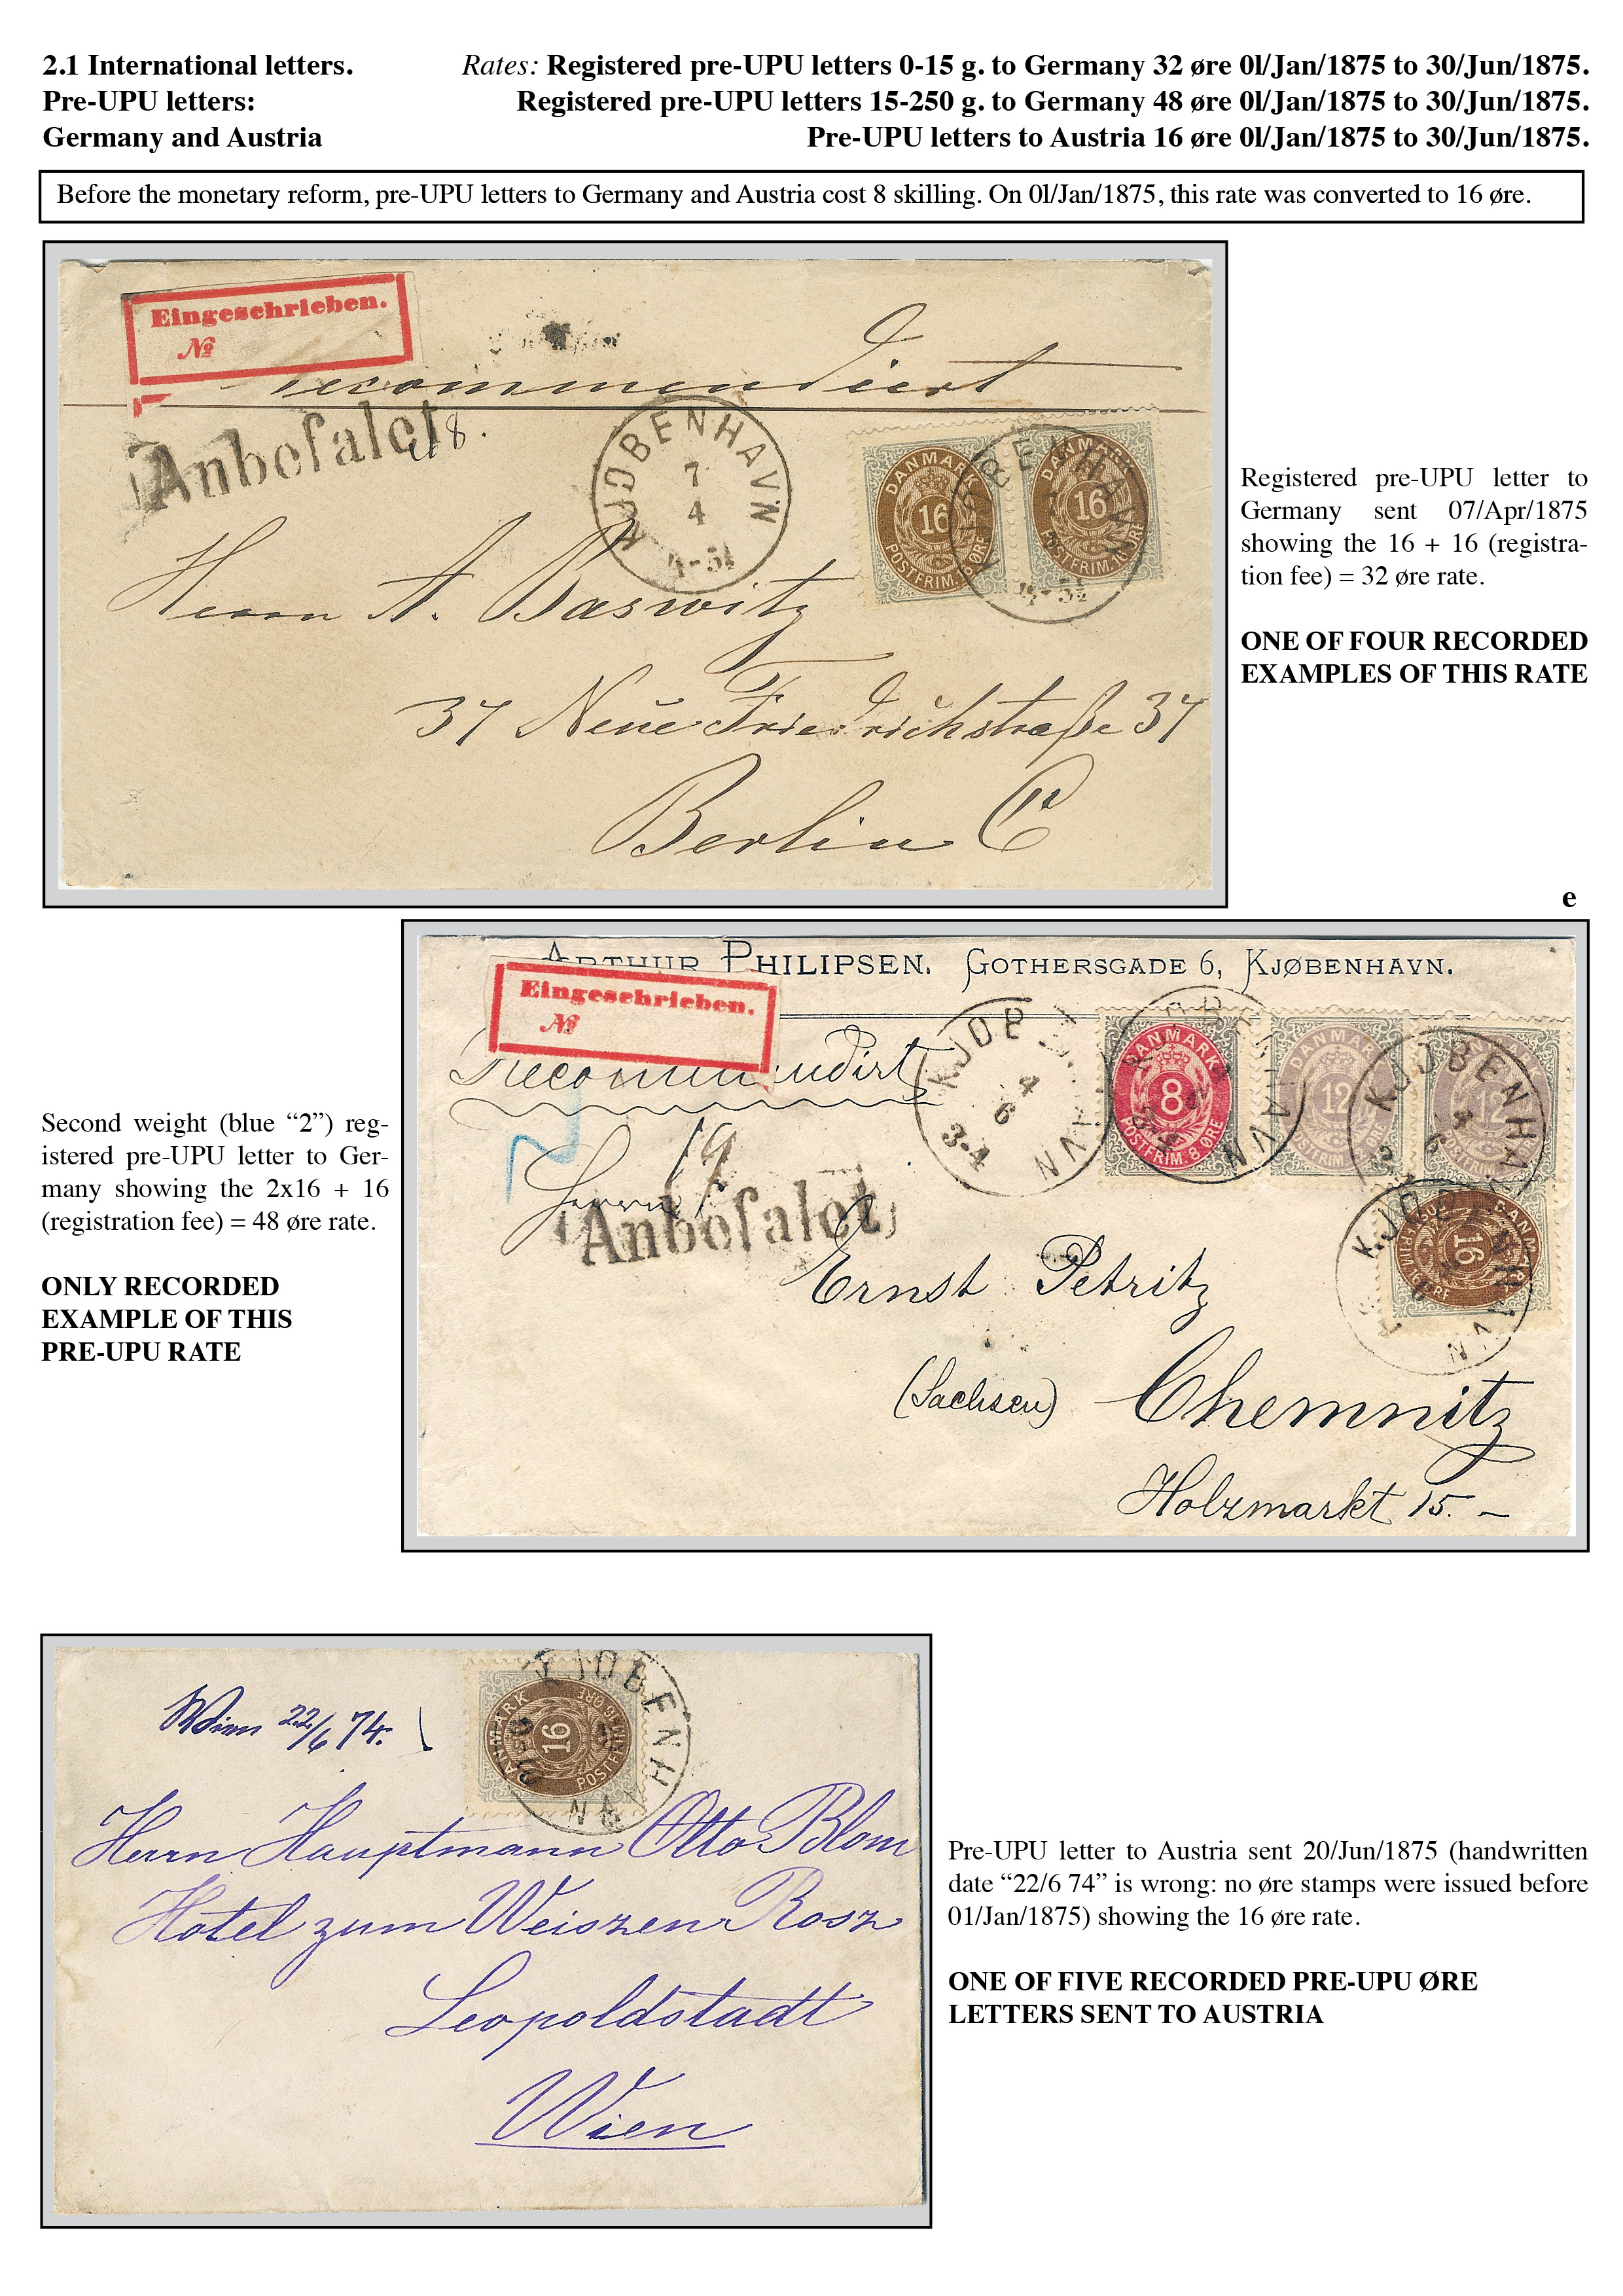 2.1 International letters.
Pre-UPU letters:
Germany and Austria
Rates: Registered pre-UPU letters 0-15 g. to Germany 32 øre 0l/Jan/1875 to 30/Jun/1875.
Registered pre-UPU letters 15-250 g. to Germany 48 øre 0l/Jan/1875 to 30/Jun/1875.
Pre-UPU letters to Austria 16 øre 0l/Jan/1875 to 30/Jun/1875.
Before the monetary reform, pre-UPU letters to Germany and Austria cost 8 skilling. On 0l/Jan/1875, this rate was converted to 16 øre.
Eingeschrieben.
№
recommendirt
Anbefalet
118.
KJØBENHAVN
7
4
DANMARK
16
POSTFRIM. 16 ØRE
DANMARK
16
POSTFRIM. 16 ØRE
Herrn A. Baswitz
37 Neue Friedrichstraße 37
Berlin C
Registered pre-UPU letter to
Germany sent 07/Apr/1875
showing the 16 + 16 (registra-
tion fee) = 32 øre rate.
ONE OF FOUR RECORDED
EXAMPLES OF THIS RATE
e
ARTHUR PHILIPSEN. GOTHERSGADE 6, KJØBENHAVN.
Eingeschrieben.
№
Recommandirt
2
19
Herrn
Anbefalet
KJØBENHAVN
4
6
3-4
DANMARK
8
POSTFRIM. 8 ØRE
DANMARK
12
POSTFRIM.
12
KJØBENHAVN
4
6
16
KJØBENHAVN
Ernst Petritz
(Sachsen) Chemnitz
Holzmarkt 15. –
Second weight (blue “2”) reg-
istered pre-UPU letter to Ger-
many showing the 2x16 + 16
(registration fee) = 48 øre rate.
ONLY RECORDED
EXAMPLE OF THIS
PRE-UPU RATE
Wien 22/6 74.
DANMARK
16
POSTFRIM. 16 ØRE
KJØBENHAVN
Herrn Hauptmann Otto Blom
Hotel zum Weiszen Rosz
Leopoldstadt
Wien
Pre-UPU letter to Austria sent 20/Jun/1875 (handwritten
date “22/6 74” is wrong: no øre stamps were issued before
01/Jan/1875) showing the 16 øre rate.
ONE OF FIVE RECORDED PRE-UPU ØRE
LETTERS SENT TO AUSTRIA